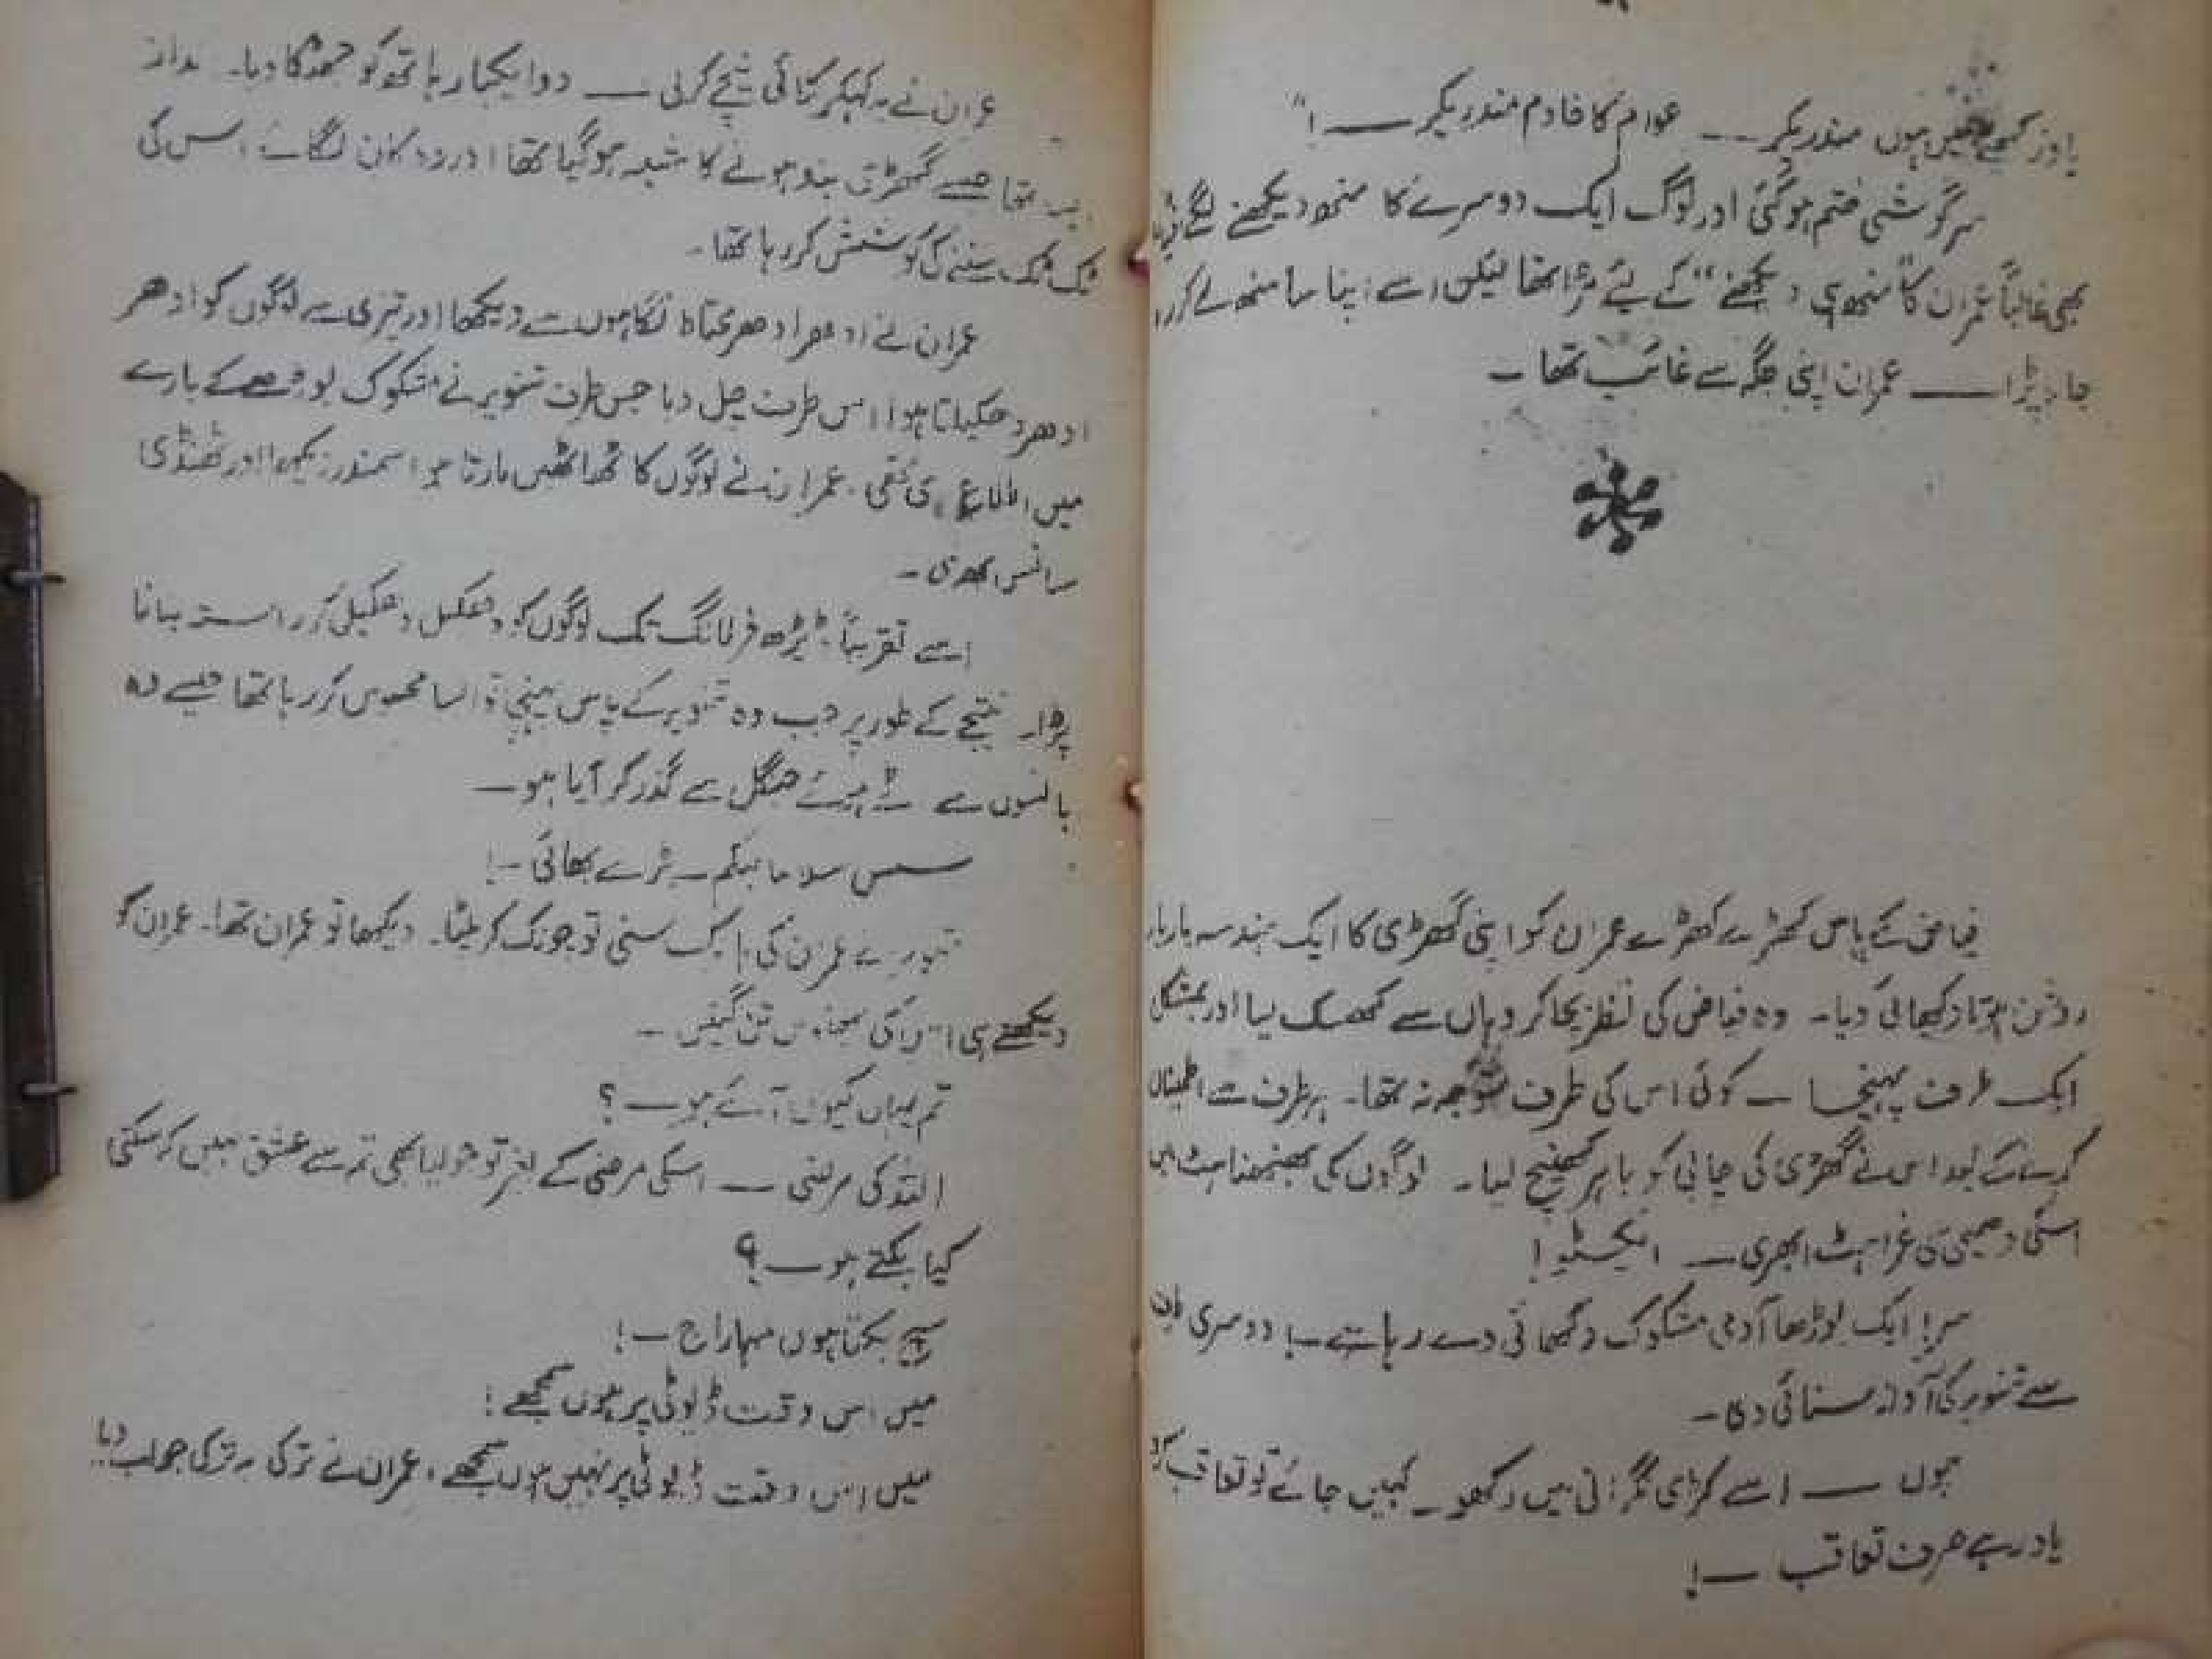 یاور کمیٹی نہیں ہوں مندریکر ــــ عوام کا خادم مندریکر ــــ !"
سرگوشی ختم ہوگئی اور لوگ ایک دوسرے کا منھ دیکھنے لگے
بھی غالباً عمران کا "منھ ہی دیکھنے" کے لئے مڑا تھا لیکن اسے اپنا سا منھ لے کر
جانا پڑا ــــ عمران اپنی جگہ سے غائب تھا ۔
فیاض کے پاس کھڑے کھڑے عمران کو اپنی گھڑی کا ایک ہندسہ بار بار
روشن ہوتا دکھائی دیا ۔ وہ فیاض کی نظر بچا کر وہاں سے کھسک لیا اور بمشکل
ایک طرف پہنچا ــ کوئی اس کی طرف متوجہ نہ تھا ۔ ہر طرف سے اطمینان
کرنے کے بعد اس نے گھڑی کی چابی کو باہر کھینچ لیا ۔ لوگوں کی بھنبھناہٹ میں
اسکی دھیمی سی غراہٹ ابھری ــ ایکسٹو !
سر! ایک بوڑھا آدمی مشکوک دکھائی دے رہا ہے ــ! دوسری طرف
سے تنویر کی آواز سنائی دی ۔
ہوں ــــ اسے کڑی نگرانی میں رکھو ــ کہیں جائے تو تعاقب کرو
یاد رہے صرف تعاقب ــ!
عمران نے یہ کہکر کلائی نیچے کرلی ــــ دو ایکبار ہاتھ کو جھٹکا دیا ۔ انداز
ایسا تھا جیسے گھڑی بند ہونے کا شبہ ہوگیا تھا اور وہ کان لگائے اس کی
ٹک ٹک سننے کی کوشش کر رہا تھا ۔
عمران نے ادھر ادھر محتاط نگاہوں سے دیکھا اور تیزی سے لوگوں کو ادھر
ادھر دھکیلتا ہوا اس طرف چل دیا جس طرف تنویر نے مشکوک بوڑھے کے بارے
میں اطلاع دی تھی ۔ عمران نے لوگوں کا ٹھاٹھیں مارتا ہوا سمندر دیکھا اور ٹھنڈی
سانس بھری ۔
اسے تقریباً ڈیڑھ فرلانگ تک لوگوں کو دھکیل دھکیل کر راستہ بنانا
پڑا ۔ نتیجے کے طور پر جب وہ تنویر کے پاس پہنچا تو ایسا محسوس کر رہا تھا جیسے وہ
بانسوں سے ہوئے جنگل سے گذر کر آیا ہو ــ
سس سلاما لیکم ــ بڑے بھائی ــ!
تنویر نے عمران کی ہانک سنی تو چونک کر پلٹا ۔ دیکھا تو عمران تھا ۔ عمران کو
دیکھتے ہی اسکی بھنویں تن گئیں ۔
تم یہاں کیوں آئے ہو ــ ؟
اللہ کی مرضی ــ اسکی مرضی کے بغیر تو جولیا بھی تم سے عشق نہیں کرسکتی
کیا بکتے ہو ــ ؟
سچ بکتا ہوں مہاراج ــ!
میں اس وقت ڈیوٹی پر ہوں سمجھے !
میں اس وقت ڈیوٹی پر نہیں ہوں سمجھے ، عمران نے ترکی بہ ترکی جواب دیا